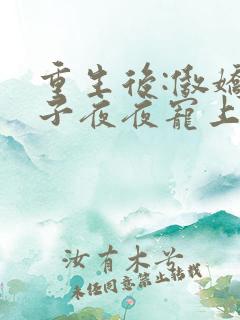 重生后:傲娇
子夜夜宠上
汝有木兮
未经同意禁止转载